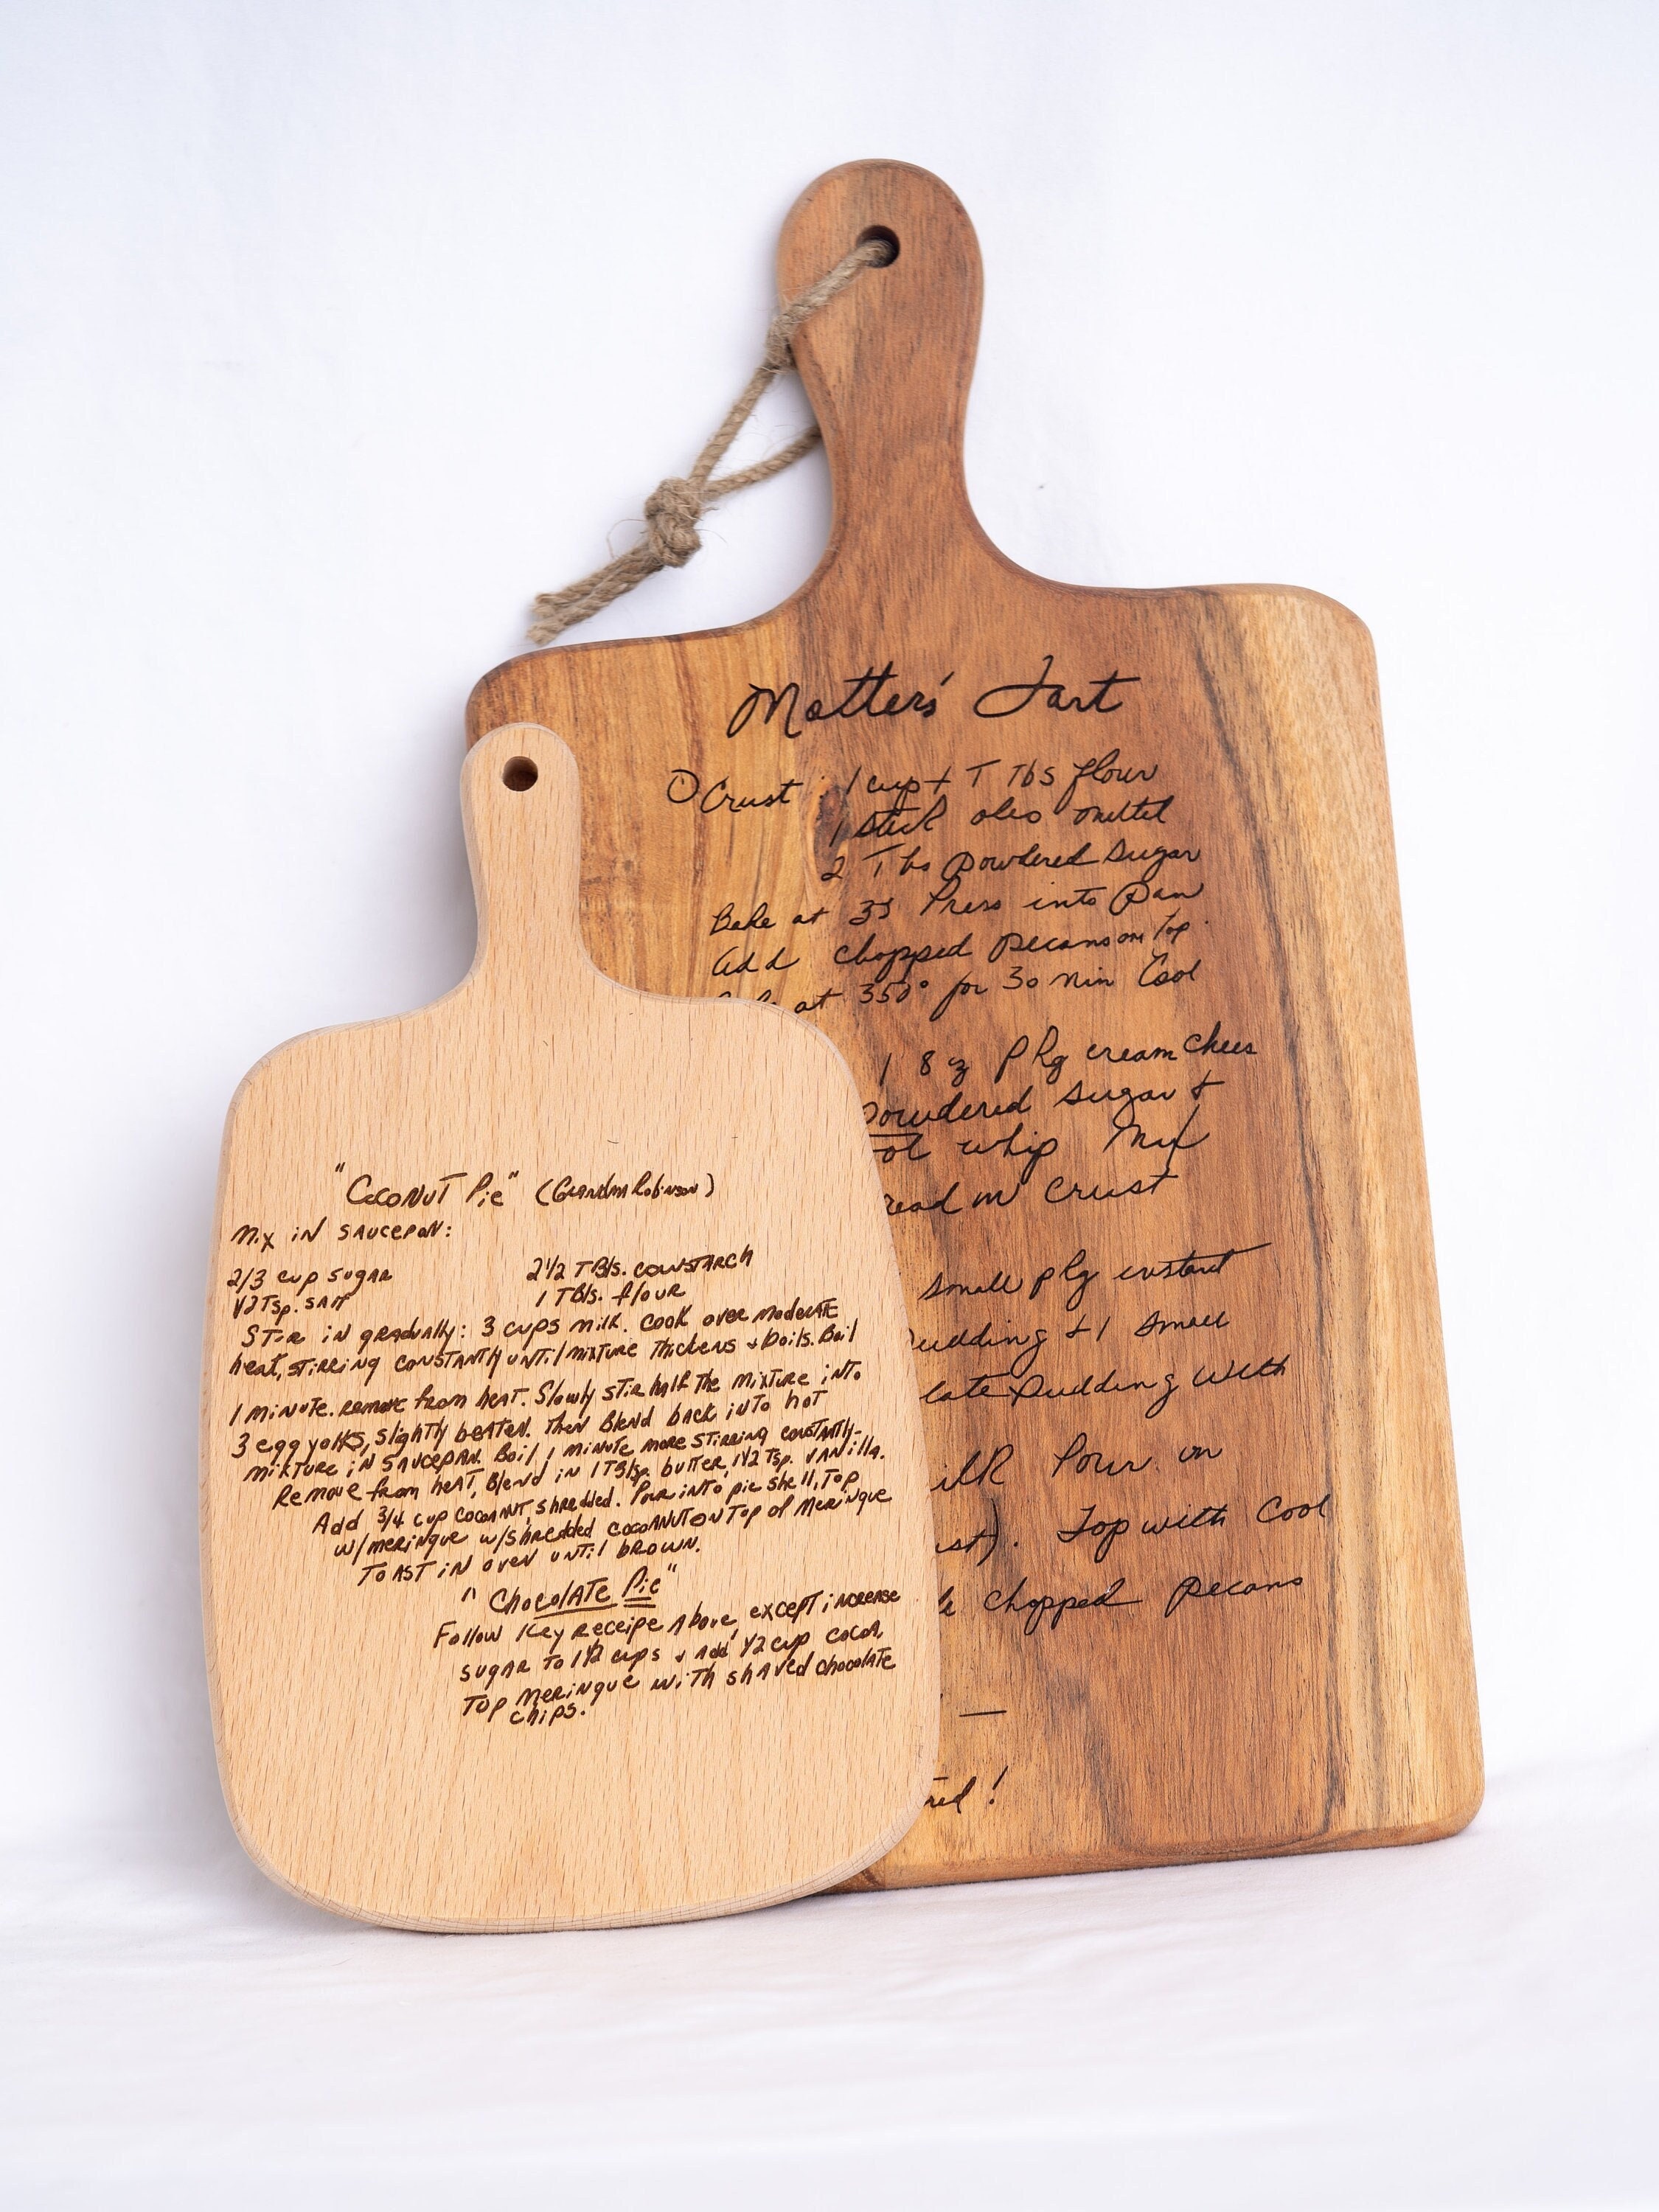 Matter's Tart
Crust 1 cup + T Tbs flour
1 stick oleo melted
2 Tbs powdered sugar
Bake at 35 Press into pan
Add chopped pecans on top.
at 350° for 30 min Cool
1 8 z pkg cream chees
powdered sugar +
ool whip Mix
read on crust
small pkg instant
pudding + 1 small
late pudding with
ilk Pour on
ust). Top with Cool
chopped pecans
—
red!
"Coconut Pie" (Grandma Robinson)
Mix in saucepan:
2/3 cup sugar 2 1/2 TBls. cornstarch
1/2 Tsp. salt 1 TBls. flour
Stir in gradually: 3 cups milk. Cook over moderate
heat, stirring constantly until mixture thickens + boils. Boil
1 minute. remove from heat. Slowly stir half the mixture into
3 egg yolks, slightly beaten. Then Blend back into hot
mixture in saucepan. Boil 1 minute more stirring constantly.
Remove from heat, Blend in 1 TBlsp. butter, 1 1/2 Tsp. vanilla.
Add 3/4 cup coconut, shredded. Pour into pie shell, Top
w/meringue w/shredded coconut on Top of Meringue
Toast in oven until brown.
"Chocolate Pie"
Follow Key receipe Above, except increase
sugar to 1 1/2 cups + add 1/2 cup cocoa,
Top Meringue with shaved chocolate
chips.